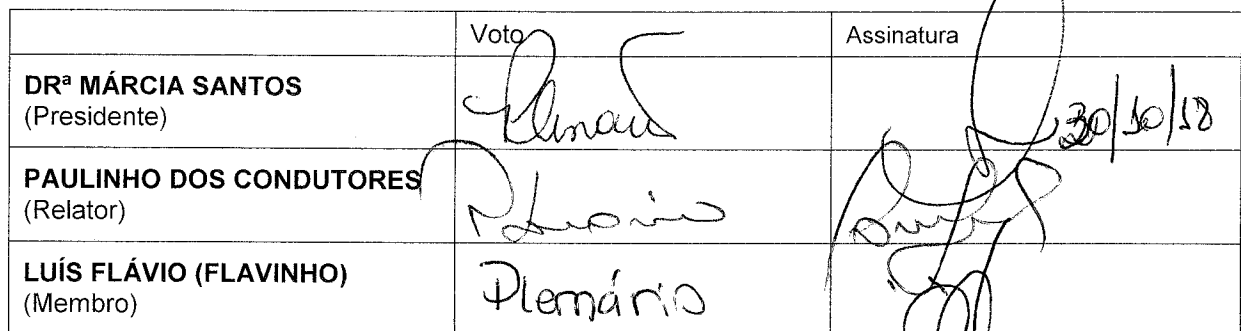 Voto Assinatura
DRª MÁRCIA SANTOS
(Presidente)
30/10/18
PAULINHO DOS CONDUTORES
(Relator)
LUÍS FLÁVIO (FLAVINHO)
(Membro)
Plenário